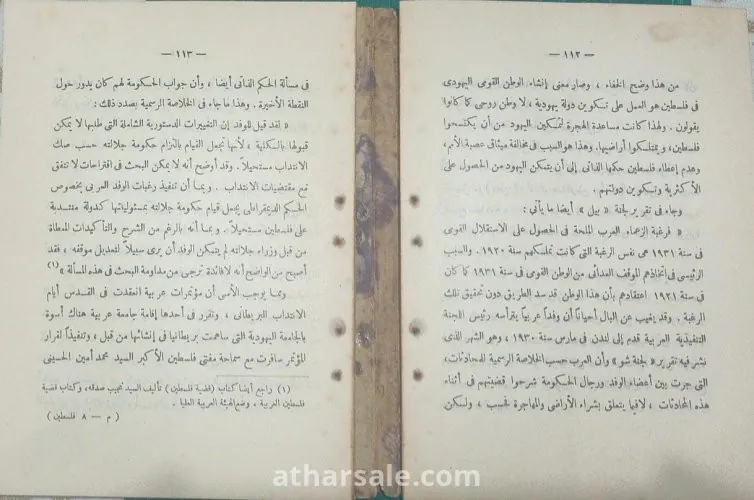 — ١١٢ —
من هذا وضح الخفاء ، وصار معنى إنشاء الوطن القومى اليهودى
فى فلسطين هو العمل على تكوين دولة يهودية ، لا وطن روحى كما كانوا
يقولون . ولهذا كانت مساعدة الهجرة لتمكين اليهود من أن يكتسحوا
فلسطين ، ويمتلكوا أراضيها. وهذا هو السبب فى مخالفة ميثاق عصبة الأمم ،
وعدم إعطاء فلسطين حكمها الذاتى إلى أن يتمكن اليهود من الحصول على
الأكثرية وتكوين دولتهم .
وجاء فى تقرير لجنة « بيل » أيضا ما يأتى :
« فرغبة الزعماء العرب الملحة فى الحصول على الاستقلال القومى
فى سنة ١٩٣١ هى نفس الرغبة التى كانت تملكهم سنة ١٩٢٠ . والسبب
الرئيسى فى اتخاذهم الموقف العدائى من الوطن القومى فى سنة ١٩٣١ كما كان
فى سنة ١٩٢١ اعتقادهم بأن هذا الوطن قد سد الطريق دون تحقيق تلك
الرغبة . وقد يغيب عن البال أحيانًا أن وفداً عربياً يترأسه رئيس اللجنة
التنفيذية العربية قدم إلى لندن فى مارس سنة ١٩٣٠ ، وهو الشهر الذى
نشر فيه تقرير « لجنة شو » وأن العرب حسب الخلاصة الرسمية للمحادثات ،
التى جرت بين أعضاء الوفد ورجال الحكومة شرحوا قضيتهم فى أثناء
هذه المحادثات ، لا فيما يتعلق بشراء الأراضى والمهاجرة فحسب ، ولكن
— ١١٣ —
فى مسألة الحكم الذاتى أيضا ، وأن جواب الحكومة لهم كان يدور حول
النقطة الأخيرة . وهذا ما جاء فى الخلاصة الرسمية بصدد ذلك :
« لقد قيل للوفد إن التغييرات الدستورية الشاملة التى طلبها لا يمكن
قبولها بالكلية ، لأنها تجعل القيام بالتزام حكومة جلالته حسب صك
الانتداب مستحيلاً . وقد أوضح أنه لا يمكن البحث فى اقتراحات لا تتفق
مع مقتضيات الانتداب . وبما أن تنفيذ رغبات الوفد العربى بخصوص
الحكم الديمقراطى يجعل قيام حكومة جلالته بمسئولياتها كدولة منتدبة
على فلسطين مستحيلاً . وبما أنه بالرغم من الشرح والتأكيدات المعطاة
من قبل وزراء جلالته لم يتمكن الوفد أن يرى سبيلاً لتعديل موقفه ، فقد
أصبح من الواضح أنه لا فائدة ترجى من مداومة البحث فى هذه المسألة » (١)
ومما يوجب الأسى أن مؤتمرات عربية انعقدت فى القدس أيام
الانتداب البريطانى ، وتقرر فى أحدها إقامة جامعة عربية هناك أسوة
بالجامعة اليهودية التى ساهمت بريطانيا فى إنشائها من قبل ، وتنفيذاً لقرار
المؤتمر سافرت مع سماحة مفتى فلسطين الأكبر السيد محمد أمين الحسينى
(١) راجع أيضا كتاب (قضية فلسطين) تأليف السيد نجيب صدقه، وكتاب قضية
فلسطين العربية ، وضع الهيئة العربية العليا .
( م — ٨ فلسطين )
atharsale.com